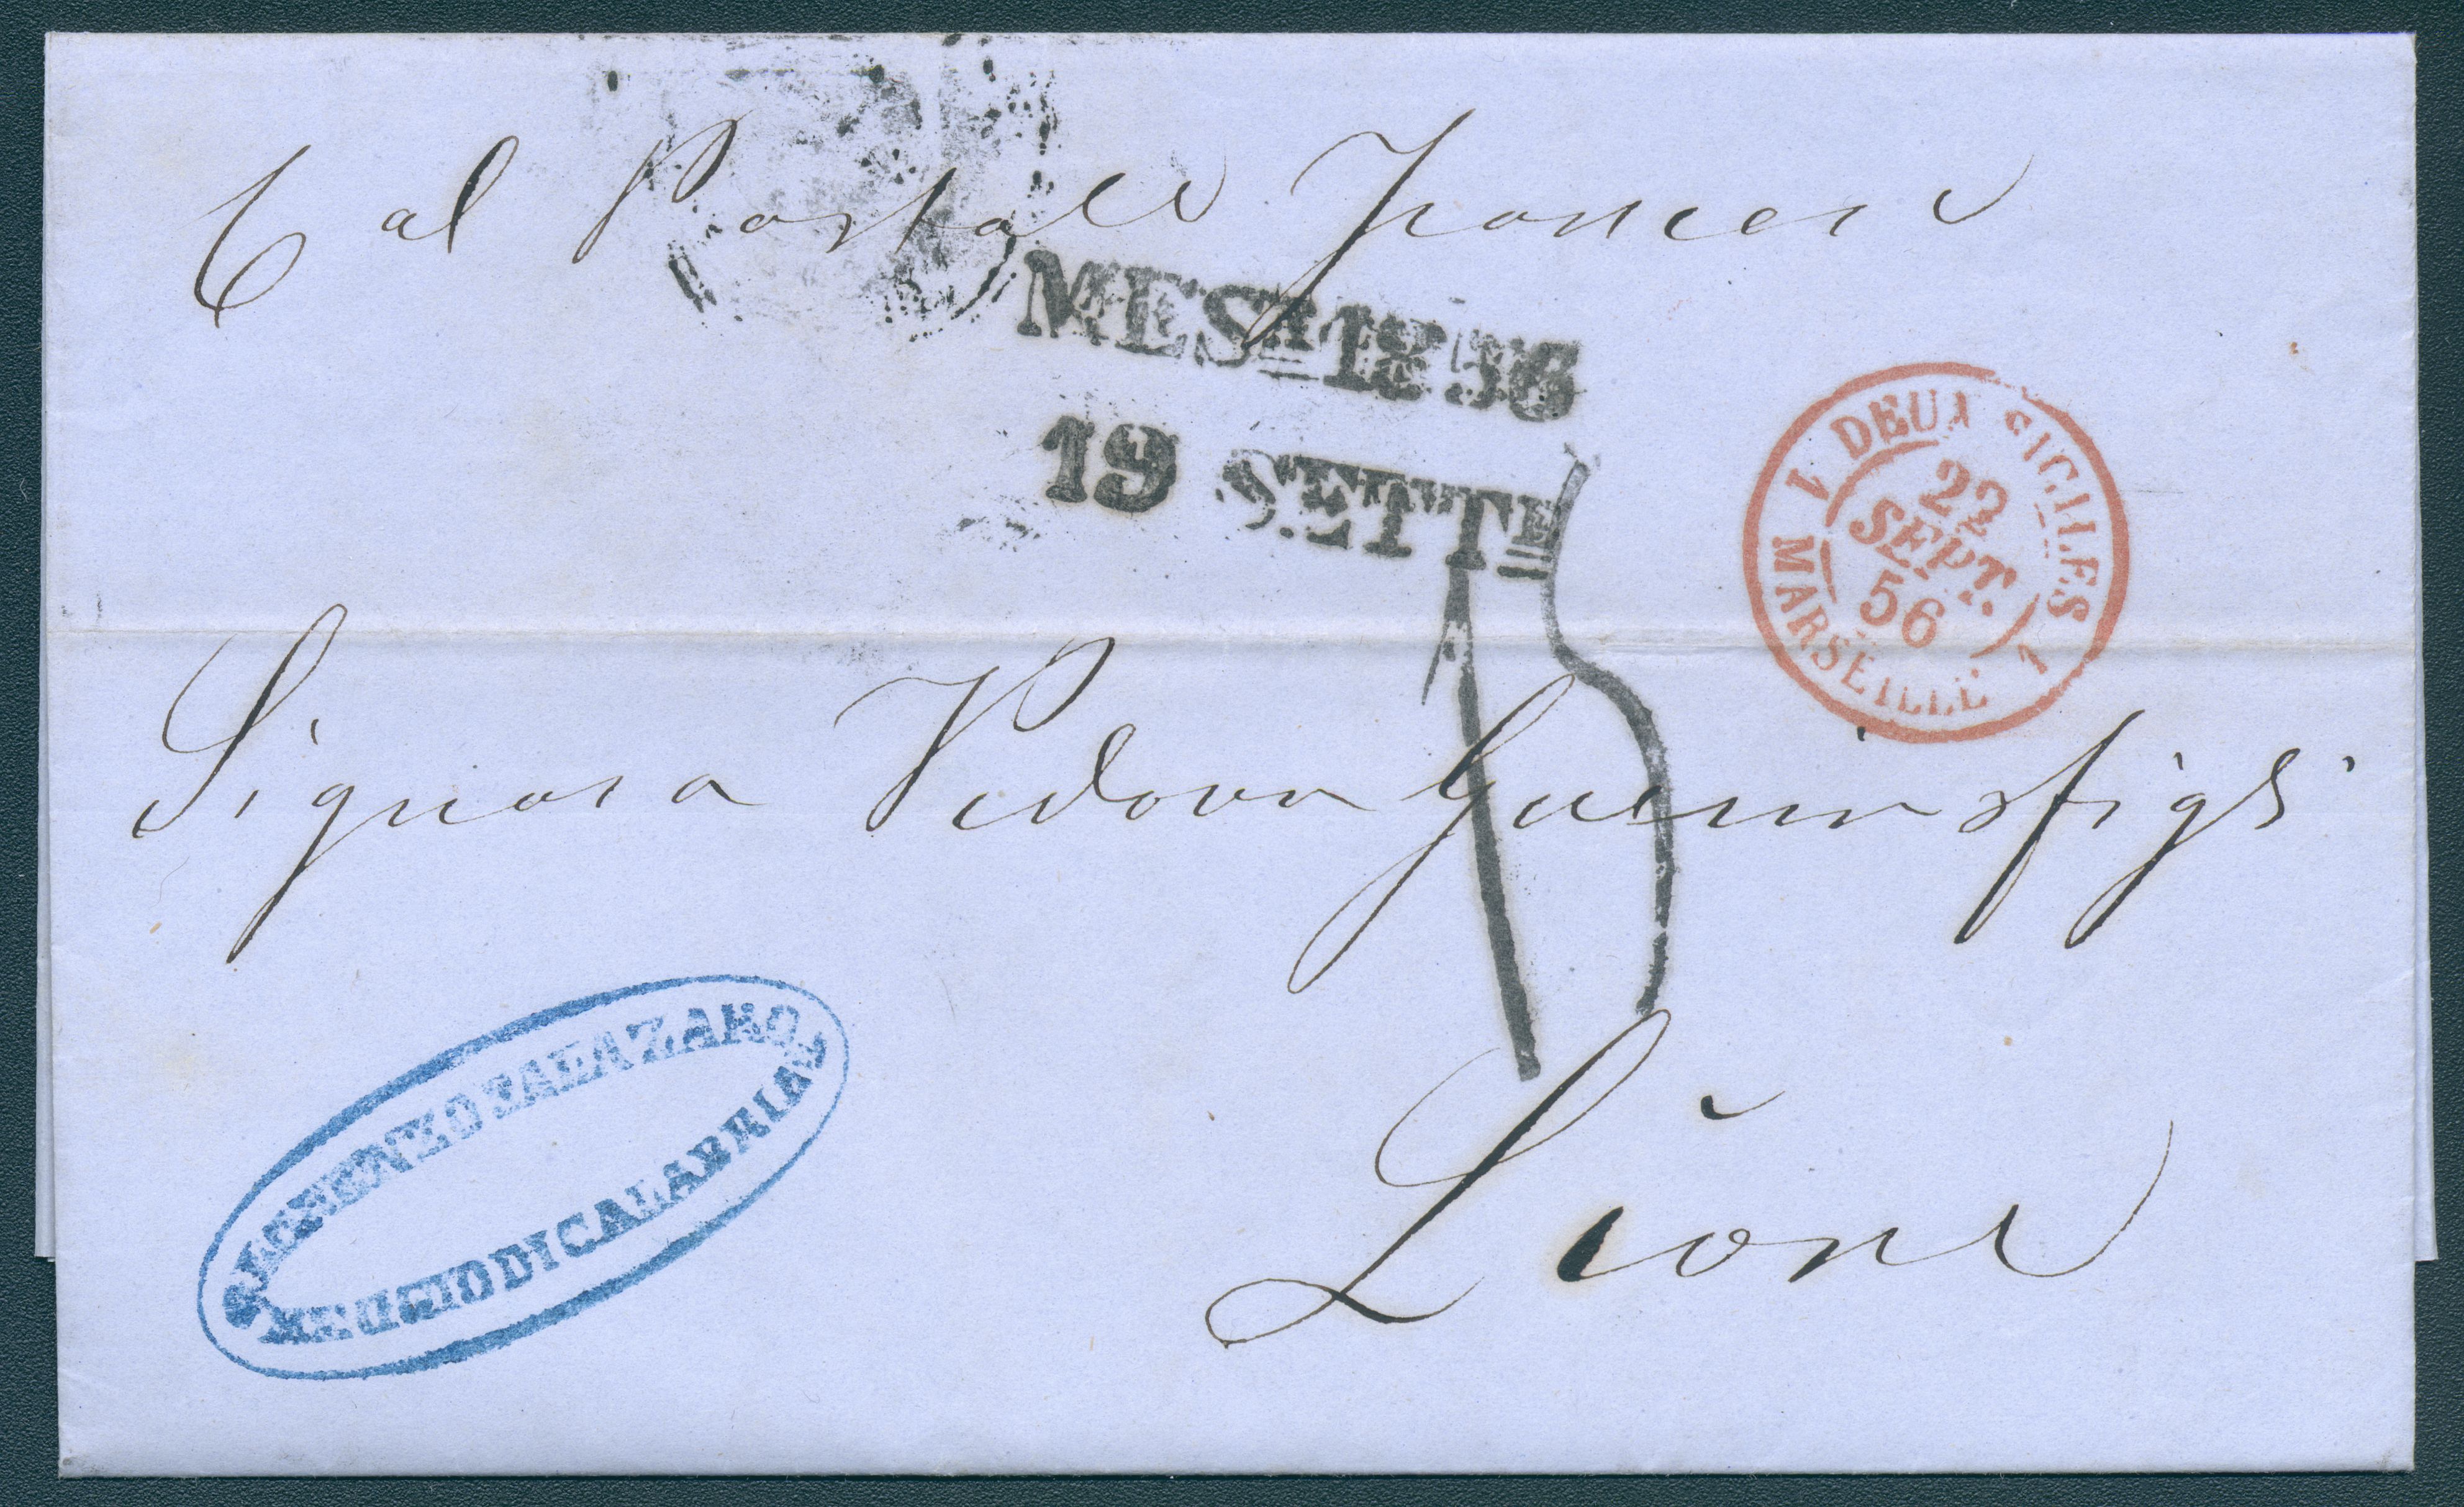 Col Postale Francese
MESA 1856
19 SETTE
1 DEUX SICILES 1
22
SEPT.
56
MARSEILLE
15
Signora Vedova Guerin & figli
Lione
LORENZO SALAZARO
REGGIO DI CALABRIA